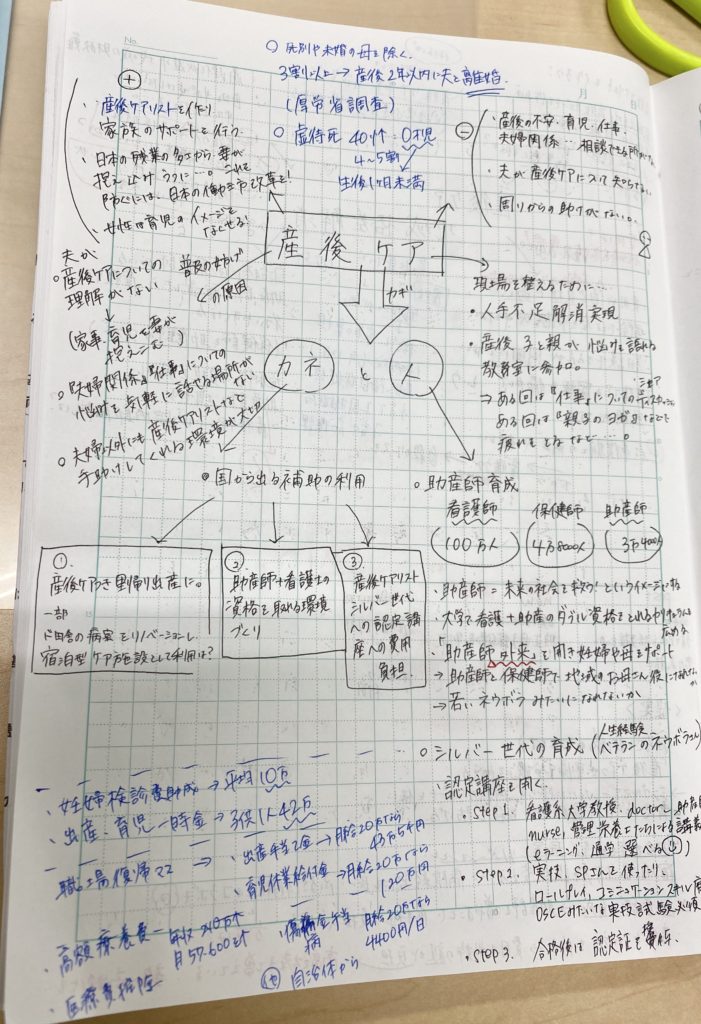 No.
月
○ 死別や未婚の母を除く。
3割以上→産後2年以内に夫と離婚。
(厚労省調査)
○ 虐待死 40件：0才児
4〜5割
生後1ヶ月未満
⊕
・産後ケアリストを作り、
家族のサポートを行う。
・日本の残業の多さから妻が
抱え込みうつに…。これを
防ぐには、日本の働き方改革を！
・女性＝育児のイメージを
なくせる！
⊖
・産後の不安・育児・仕事・
夫婦関係…相談できる所が
・夫が産後ケアについて知らない。
・周りからの助けがない。
産後ケア
普及の妨げ
の原因
カギ
夫が
○産後ケアについての
理解がない
(家事・育児を妻が
抱えこむ)
○『夫婦関係』『仕事』についての
悩みを気軽に話せる場所がない
○夫婦以外にも産後ケアリストなど
手助けしてくれる環境が大切
カネ と 人
現場を整えるために…
・人手不足解消実現
・産後子と親が悩みを語れる
教室に参加。
⇒ある回は『仕事』についてのシェア ディスカッション
ある回は『親子のヨガ』などで
疲れをとるなど…。
●国から出る補助の利用
①
産後ケアつき里帰り出産に。
一部
ド田舎の病室をリノベーションし、
宿泊型ケア施設として利用は？
②
助産師＋看護士の
資格を取れる環境
づくり
③
産後ケアリスト
シルバー世代
への認定講
座への費用
負担.
○助産師育成
看護師 保健師 助産師
(100万人) (4万8000人) (3万4000人)
・助産師＝未来の社会を救う！というイメージ
・大学で看護＋助産のダブル資格をとれる
広める
・「助産師外来」を開き妊婦や母をサポート
→助産師と保健師で地域のお母さん
→若いネウボラみたいになれないか
○シルバー世代の育成(人生経験 ベテランのネウボラ
認定講座を開く.
・step1. 看護系大学教授、doctor、助産
nurse、管理栄養士たちによる講義
(eラーニング、通学選べる)
・step2. 実技、SPさんを使ったり、
ロールプレイ、コミュニケーションスキル
OSCEみたいな実技試験必須
・step3. 合格後は認定証を獲得.
・妊婦検診費助成→平均10万
・出産・育児一時金→3役1人42万
・職場復帰ママ ⇒ ・出産手当金→月給20万なら
43万54円
・育児休業給付金→月給20万なら
120万円
・高額療養費 — 年収210万
月57.600
・傷病手当 月給20万なら
4400円/日
・医療費控除
他 自治体から